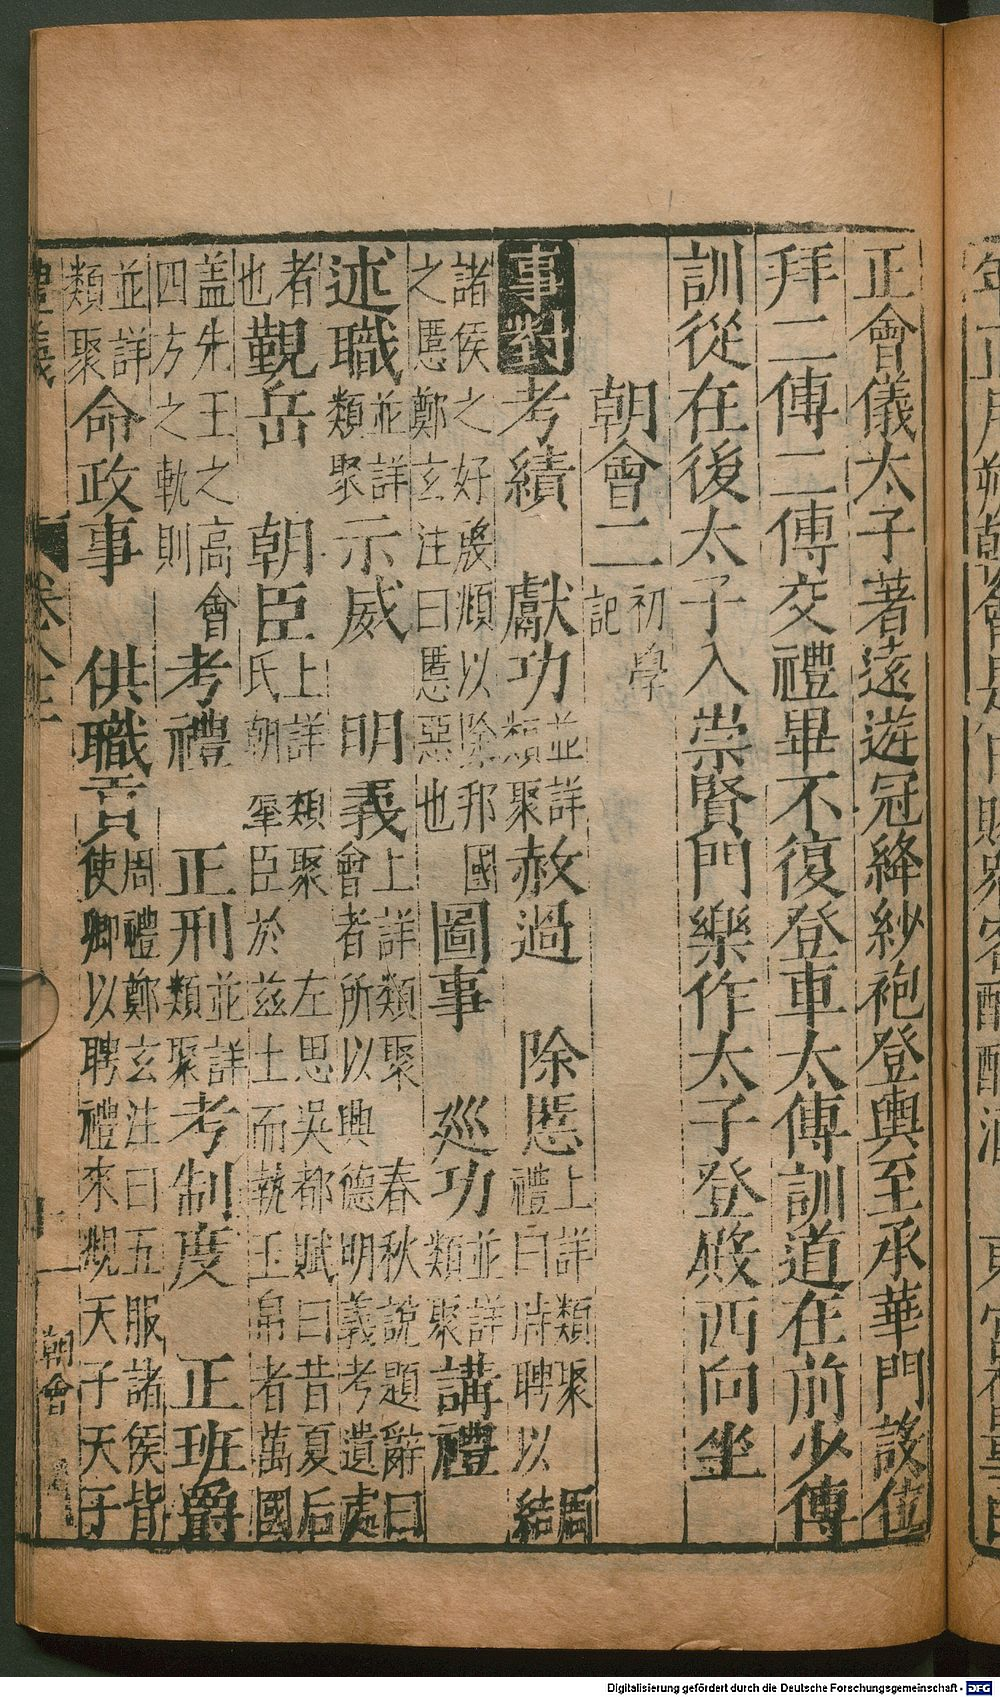 正會儀太子著遠遊冠絳紗袍登輿至承華門設位
拜二傅二傅交禮畢不復登車太傅訓道在前少傅
訓從在後太子入崇賢門樂作太子登殿西向坐
朝會二 初學記
事對 考績 獻功 並詳類聚 赦過 除慝 上詳類聚 周禮曰時聘以結
諸侯之好殷頫以除邦國之慝鄭玄注曰慝惡也 圖事 巡功 並詳類聚 講禮
述職 並詳類聚 示威 明義 上詳類聚 春秋說題辭曰會者所以興德明義考遺處
者也 覲岳 朝臣 上詳類聚 左思吳都賦曰昔夏后氏朝羣臣於茲土而執玉帛者萬國
蓋先王之高會四方之軌則 考禮 正刑 並詳類聚 考制度 正班爵
並詳類聚 命政事 供職貢 周禮鄭玄注曰五服諸侯皆使卿以聘禮來覜天子天子
朝會
Digitalisierung gefördert durch die Deutsche Forschungsgemeinschaft - DFG